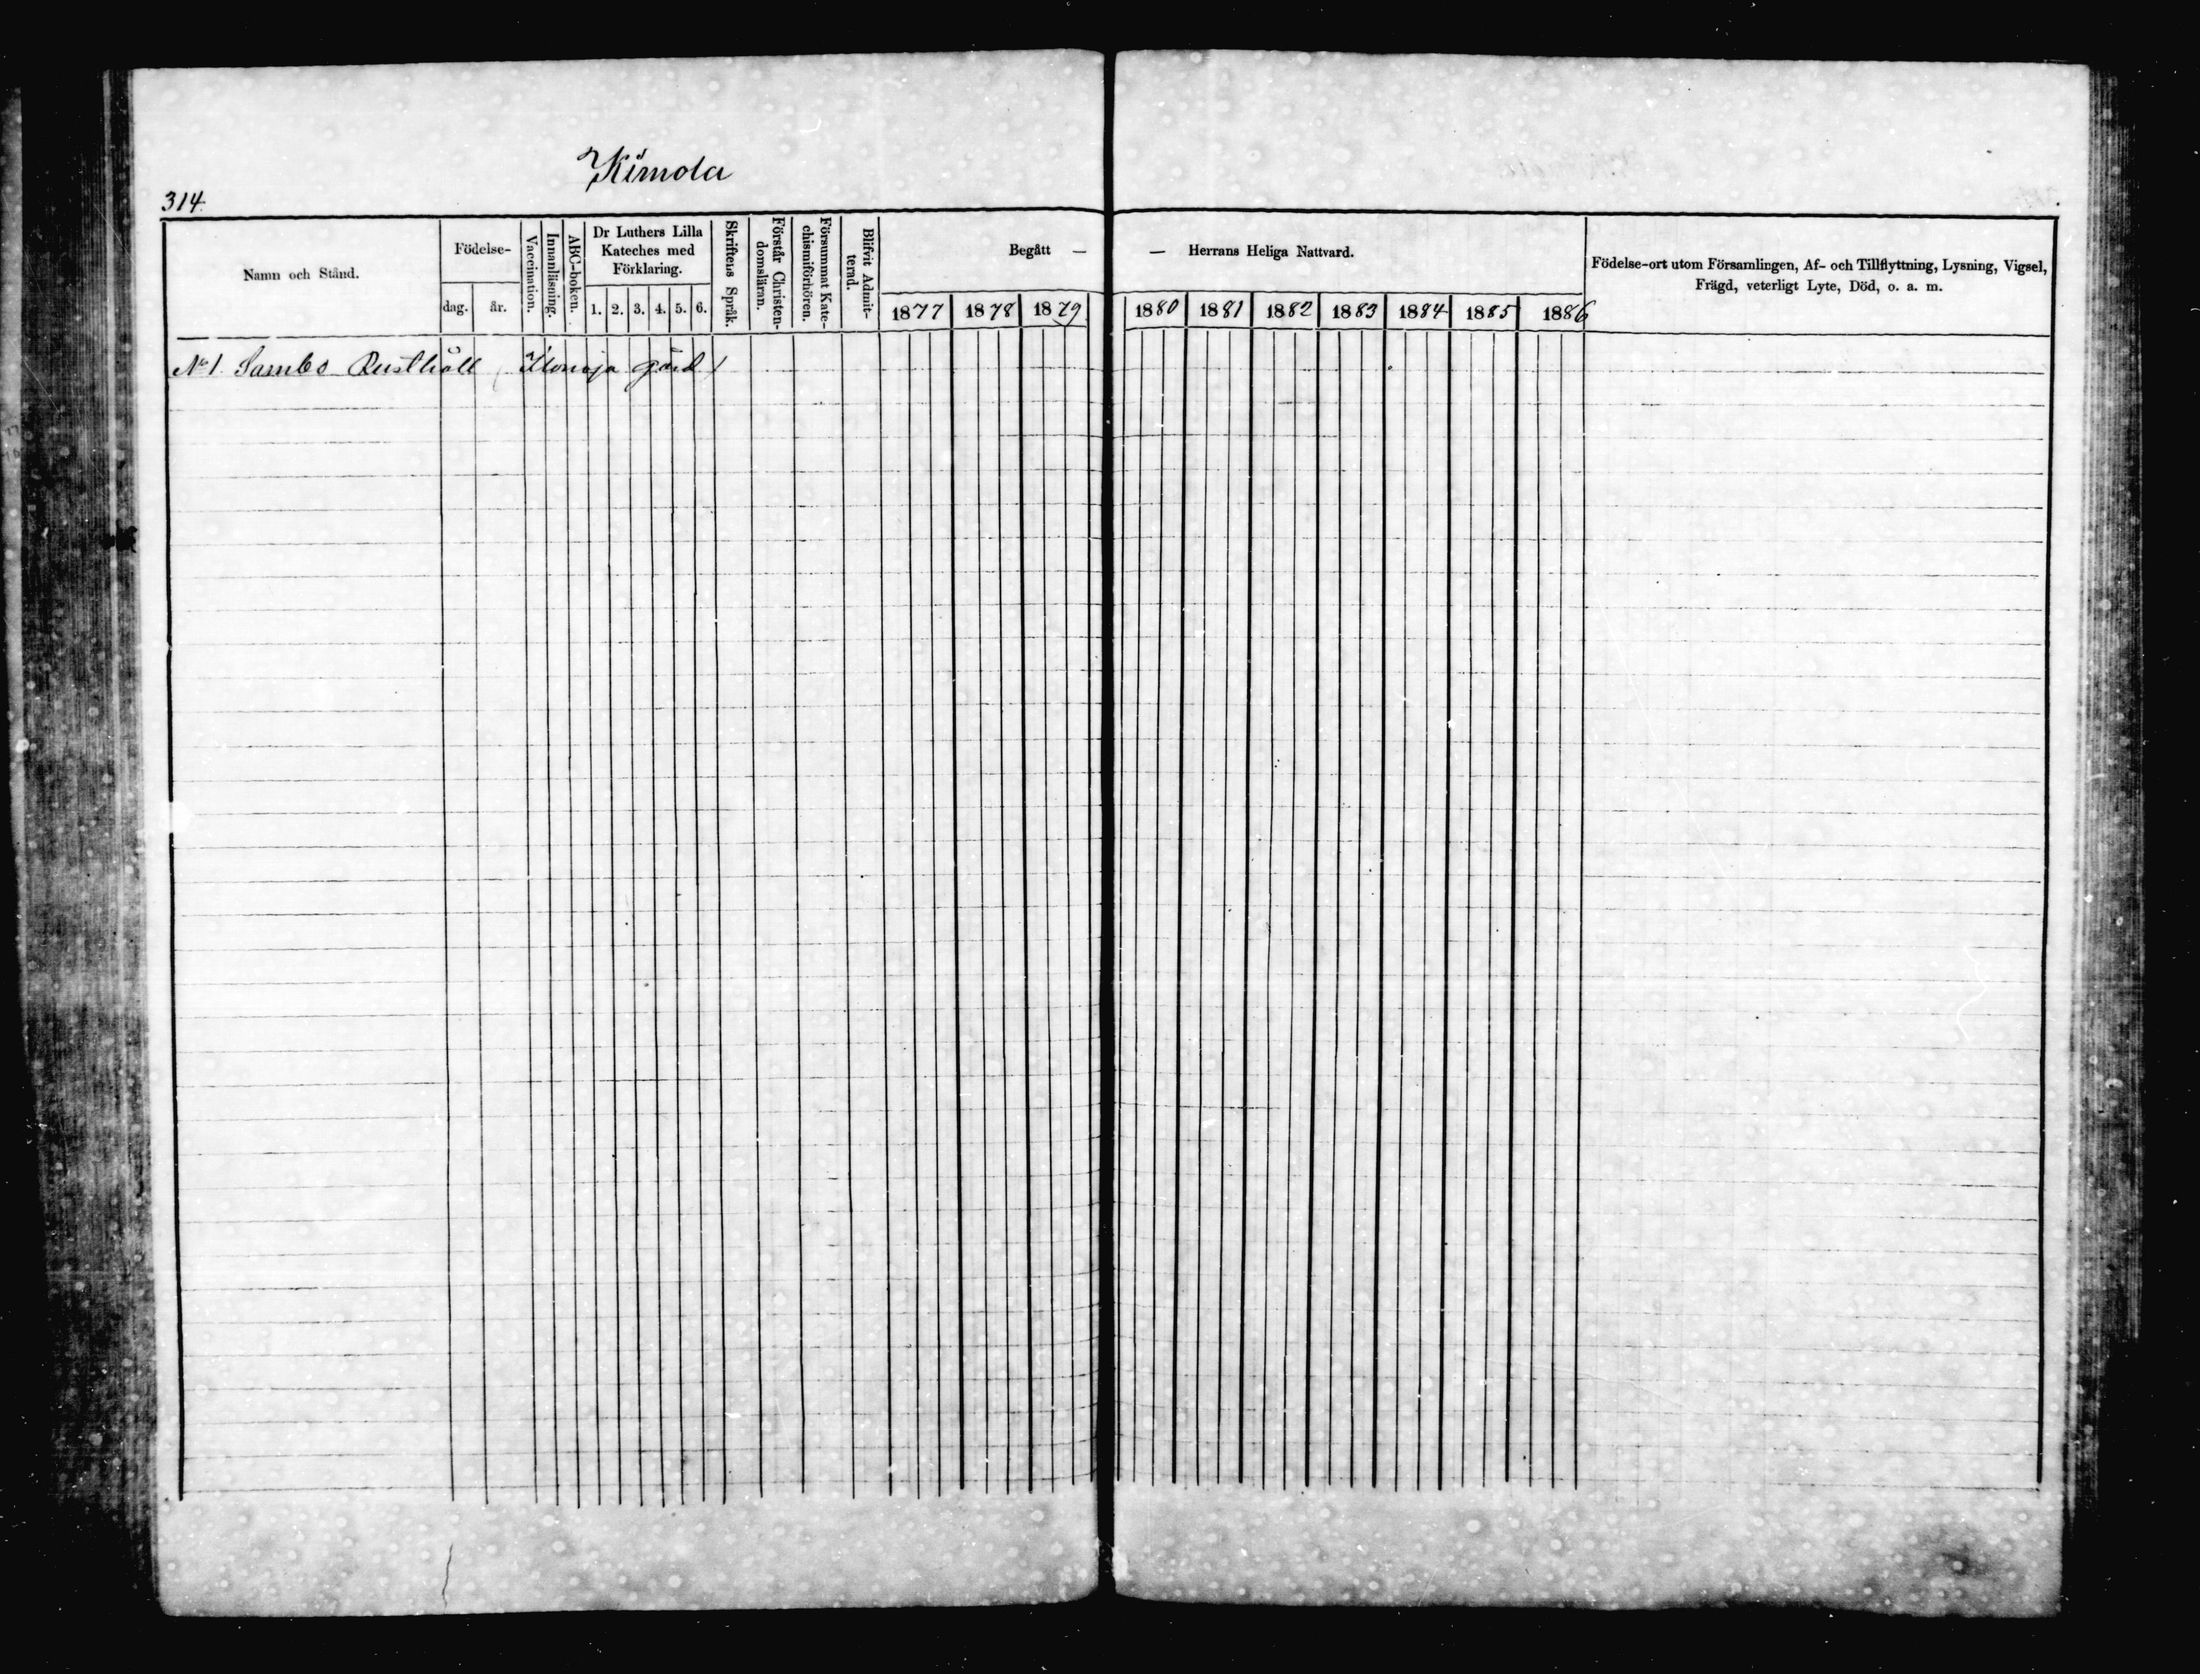 Kimola
314.
Namn och Stånd.
Födelse-
dag.
år.
Vaccination.
Innanläsning.
ABC-boken.
Dr Luthers Lilla
Kateches med
Förklaring.
1. 2. 3. 4. 5. 6.
Skriftens Språk.
Förstår Christen-
domsläran.
Försummat Kate-
chismiförhören.
Blifvit Admit-
terad.
Begått —
— Herrans Heliga Nattvard.
1877 1878 1879 1880 1881 1882 1883 1884 1885 1886
Födelse-ort utom Församlingen, Af- och Tillflyttning, Lysning, Vigsel,
Frägd, veterligt Lyte, Död, o. a. m.
No 1. Rusthåll gård)